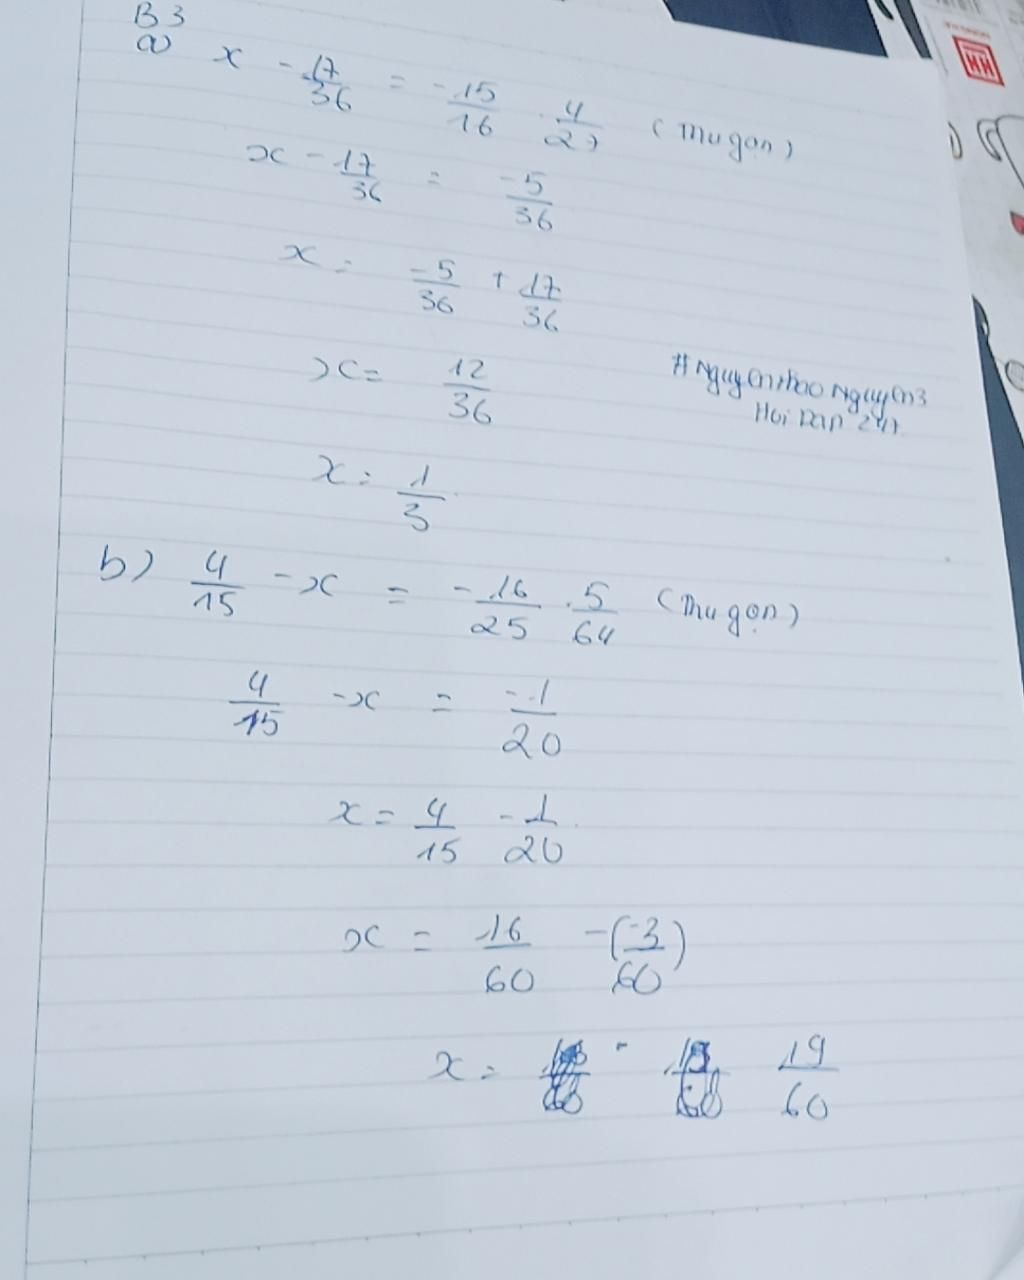 B3
a) x - 17/36 = -15/16 . 4/27 (thu gọn)
x - 17/36 = -5/36
x = -5/36 + 17/36
x = 12/36
#Nguyenthao Nguyen3
Hoi Dap 247
x = 1/3
b) 4/15 - x = -16/25 . 5/64 (thu gọn)
4/15 - x = -1/20
x = 4/15 - 1/20
x = 16/60 - (-3/60)
x = 19/60